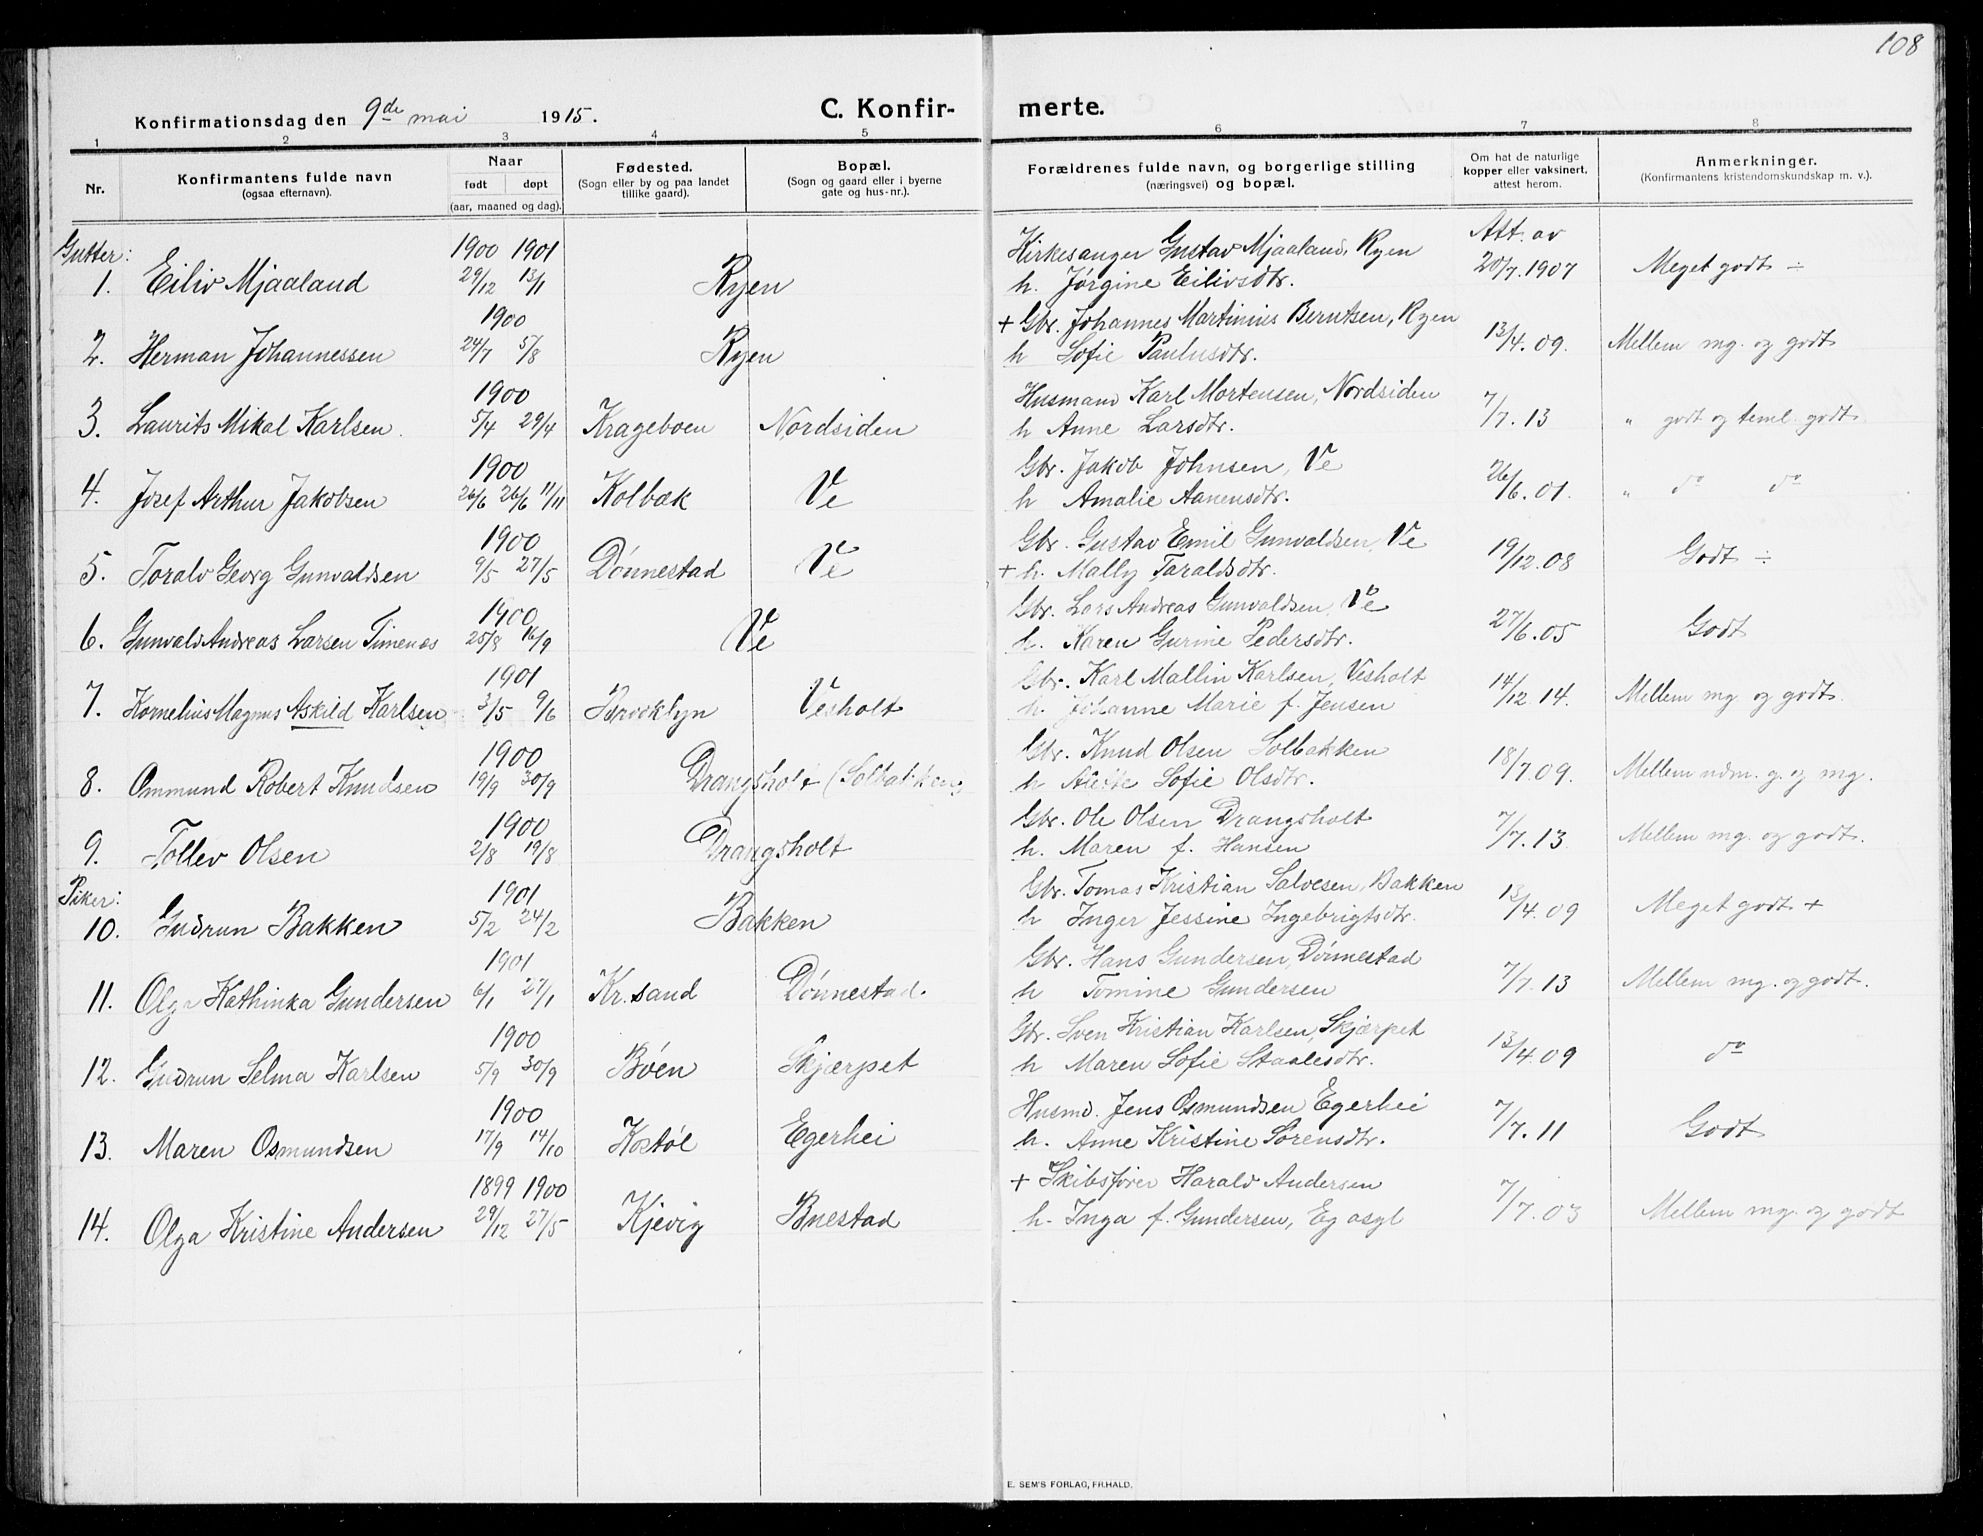 108
Konfirmationsdag den 9de mai 1915. C. Konfir- merte.
1 2 3 4 5 6 7 8
Nr. Konfirmantens fulde navn (ogsaa efternavn). Naar født døpt (aar, maaned og dag). Fødested. (Sogn eller by og paa landet tillike gaard). Bopæl. (Sogn og gaard eller i byerne gate og hus-nr.). Forældrenes fulde navn, og borgerlige stilling (næringsvei) og bopæl. Om hat de naturlige kopper eller vaksinert, attest herom. Anmerkninger. (Konfirmantens kristendomskundskap m. v.).
Gutter: 1900 1901 Kirkesanger Gustav Mjaaland, Ryen Att. av
1. Eiliv Mjaaland 29/12 13/1 Ryen h. Jørgine Eilivsdtr. 20/7.1907 Meget godt ÷
1900 + Gbr. Johannes Martinius Berntsen, Ryen
2. Herman Johannessen 24/7 5/8 Ryen h Sofie Paulusdtr. 13/4.09. Mellem mg. og godt
1900 Husmand Karl Mortensen, Nordsiden
3. Laurits Mikal Karlsen. 5/4 29/4 Krageboen Nordsiden h Anne Larsdtr. 7/7.13 " godt og teml. godt
1900 Gbr. Jakob Johnsen, Ve
4. Josef Arthur Jakobsen 26/6 26/6 11/11 Kolbæk Ve h Amalie Aanensdtr. 26/6.01. " do do
1900 Gbr. Gustav Emil Gunvaldsen, Ve
5. Toralv Georg Gunvaldsen 9/5 27/5 Dønnestad Ve + h. Mally Taraldsdtr. 19/12.08 Godt ÷
1900 Gbr. Lars Andreas Gunvaldsen, Ve
6. Gunvald Andreas Larsen Timenes 25/8 16/9 Ve h. Karen Gurine Pedersdtr. 27/6.05 Godt
1901 Gbr. Karl Mallin Karlsen, Vesholt
7. Kornelius Magnus Askild Karlsen 3/5 9/6 Brooklyn Vesholt h. Johanne Marie f. Jensen 14/12.14. Mellem mg. og godt.
1900 Gbr. Knud Olsen Solbakken
8. Ommund Robert Knudsen 19/9 30/9 Drangsholt (Solbakken) h Sofie Olsdtr. 18/7.09. Mellem udm. g. og mg.
1900 Gbr. Ole Olsen Drangsholt
9. Tollev Olsen 2/8 19/8 Drangsholt h. Maren f. Hansen 7/7.13 Mellem mg. og godt.
Piker: 1901 Gbr. Tomas Kristian Salvesen, Bakken
10. Gudrun Bakken 5/2 24/2 Bakken h Inger Jessine Ingebrigtsdtr. 13/4.09 Meget godt +
1901 Gbr. Hans Gundersen, Dønnestad
11. Olga Kathinka Gundersen 6/1 27/1 Kr.sand Dønnestad. h Tomine Gundersen 7/7.13 Mellem mg. og godt.
1900 Gbr. Sven Kristian Karlsen, Skjærpet
12. Gudrun Selma Karlsen 5/9 30/9 Bøen Skjærpet h Maren Sofie Staalesdtr. 13/4.09 do
1900 Husmd. Jens Osmundsen Egerhei
13. Maren Osmundsen 17/9 14/10 Kostøl Egerhei h. Anne Kristine Sørensdtr. 7/7.11 Godt
1899 1900 + Skibsfører Harald Andersen
14. Olga Kristine Andersen 29/12 27/5 Kjevig Bnestad h. Inga f. Gundersen, Eg asyl 7/7.03 Mellem mg. og godt
E. SEM'S FORLAG, FR.HALD.